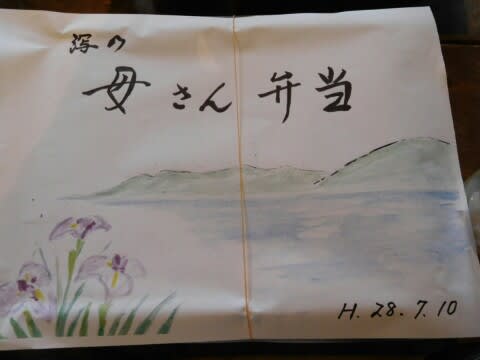 潟の
母さん弁当
H.28.7.10